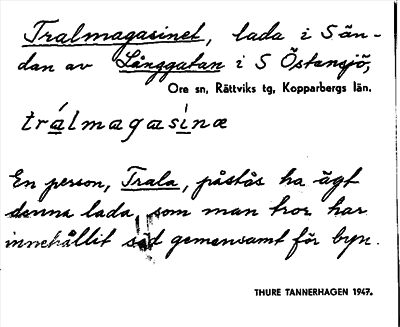 Tralmagasinet, lada i S än-
dan av Långgatan i S Östansjö,
Ore sn, Rättviks tg, Kopparbergs län.
trálmagasinæ
En person, Trala, påstås ha ägt
denna lada, som man tror har
innehållit säd gemensamt för byn.
THURE TANNERHAGEN 1947.